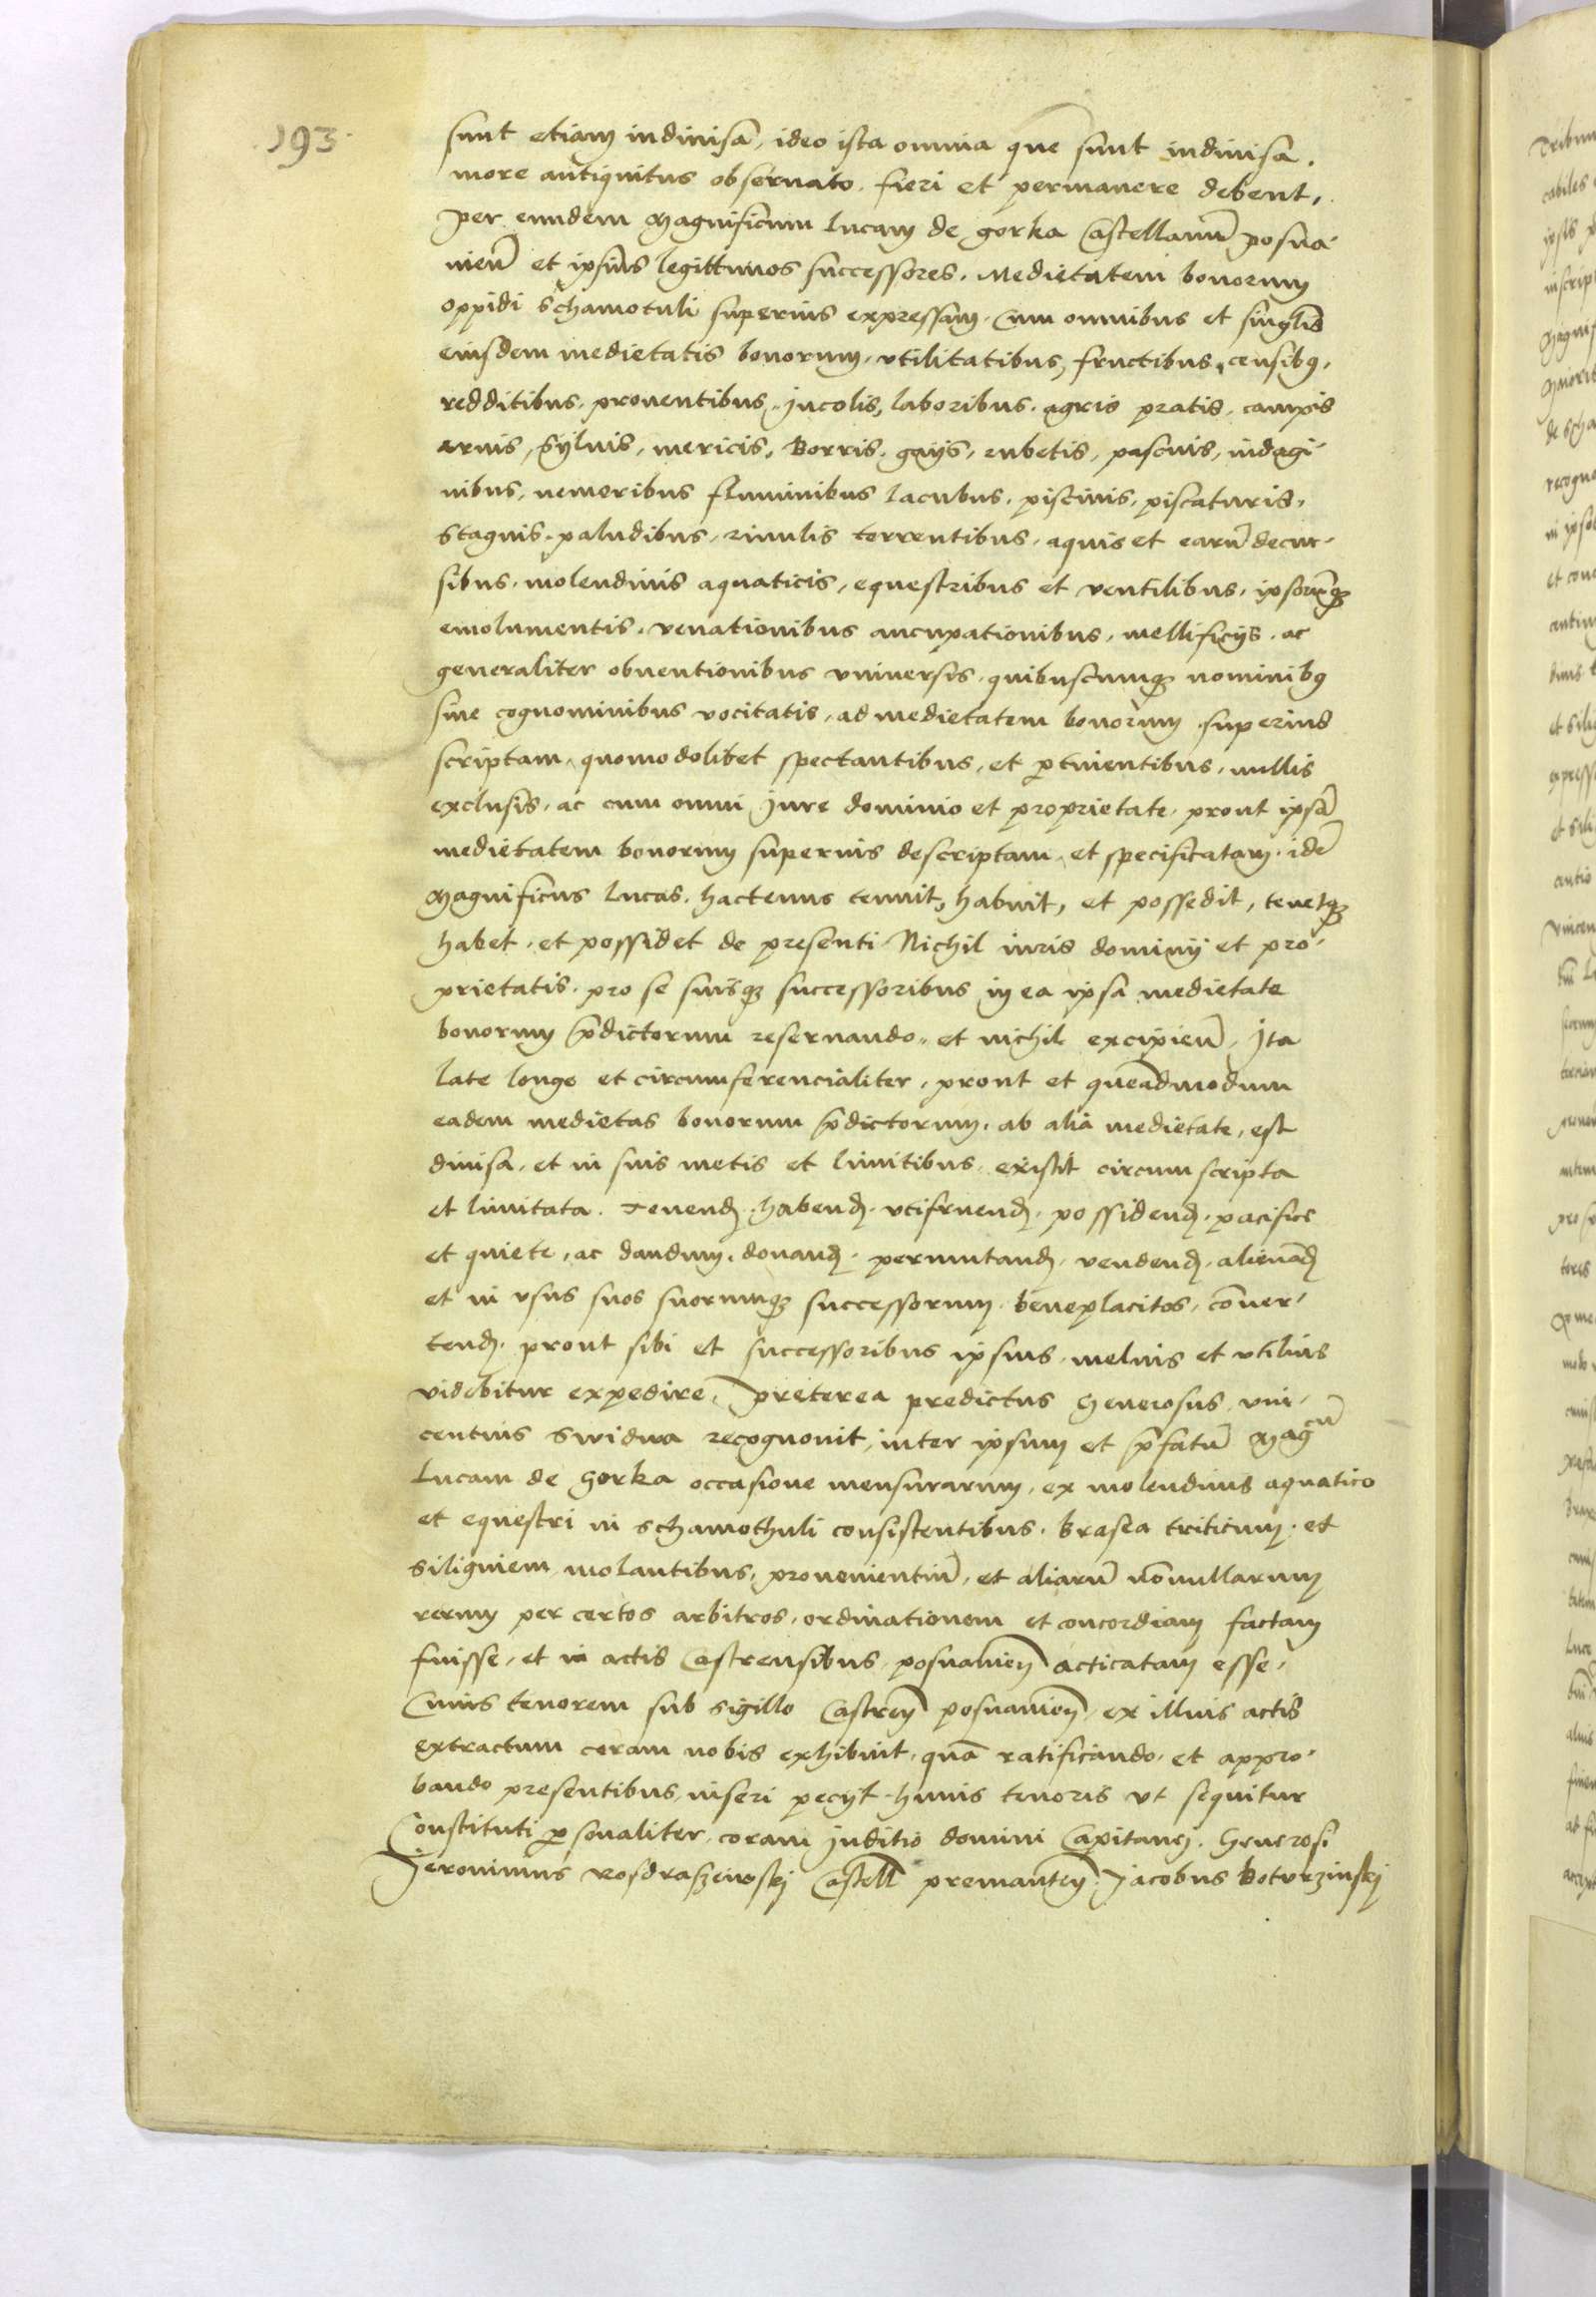 193
sunt etiam indiuisa, ideo ista omnia que sunt indiuisa.
more antiquitus obseruato. fieri et permanere debent,
per eundem Magnificum lucam de gorka Castellanū posna-
nieñ et ipsius legittimos successores. Medietatem bonorum
oppidi Schamotuli superius expressam. Cum omnibus et singlis̃
eiusdem medietatis bonorum, vtilitatibus, fructibus, censibꝫ,
redditibus. prouentibus, Incolis, laboribus. agris pratis. campis
aruis, Syluis, mericis, Borris. gayis, rubetis, pascuis, indagi-
nibus, nemoribus fluminibus lacubus. piscinis, piscaturis,
stagnis. paludibus, riuulis torrentibus, aquis et earū decur-
sibus, molendinis aquaticis, equestribus et ventilibus, ipsorūqꝫ
emolumentis, venationibus aucupationibus, mellificijs, ac
generaliter obuentionibus vniuersis, quibuscumqꝫ nominibꝫ
siue cognominibus vocitatis, ad medietatem bonorum superius
scriptam, quomodolibet spectantibus, et ꝑtinentibus, nullis
exclusis, ac cum omni Iure dominio et proprietate, prout ipsā
medietatem bonorum superius descriptam et specificatam, idē
Magnificus lucas, hactenus tenuit, habuit, et possedit, tenetqꝫ
habet, et possidet de presenti Nichil iuris dominij et pro-
prietatis, pro se suisqꝫ successoribus in ea ipsa medietate
bonorum p̄dictorum reseruando, et nichil excipieñ, Ita
late longe et circumferencialiter, prout et queādmodum
eadem medietas bonorum p̄dictorum, ab alia medietate, est
diuisa, et in suis metis et limitibus, existit circumscripta
et limitata. Tenenđ. habenđ. vtifruenđ. possidenđ. pacifice
et quiete, ac dandum, donanđ. permutanđ, vendenđ. alienāđ
et in vsus suos suorumqꝫ successorum, beneplacitos, cōuer-
tenđ. prout sibi et successoribus ipsius, melius et vtilius
videbitur expedire, Preterea predictus Generosus vin-
centius Swidwa recognouit, inter ipsum et p̄fatū Magcū
Lucam de Gorka occasione mensurarum, ex molendinis aquatico
et equestri in Schamothuli consistentibus, Brasea triticum. et
siliginem molantibus, prouenientiū, et aliarū nōnullarum
rerum per certos arbitros, ordinationem et concordiam factam
fuisse, et in actis Castrensibus, posnanieñ acticatam esse,
Cuius tenorem sub sigillo Castreñ posnanieñ, ex illius actis
extractum coram nobis exhibuit, quā ratificando, et appro-
bando presentibus, inseri pecijt. huius tenoris vt sequitur
Constituti ꝑsonaliter, coram Iuditio domini Capitanej. Generosi
Jeronimus Rosdrasewskj Castell̃ premanteñ. Jacobus Koturzinskj